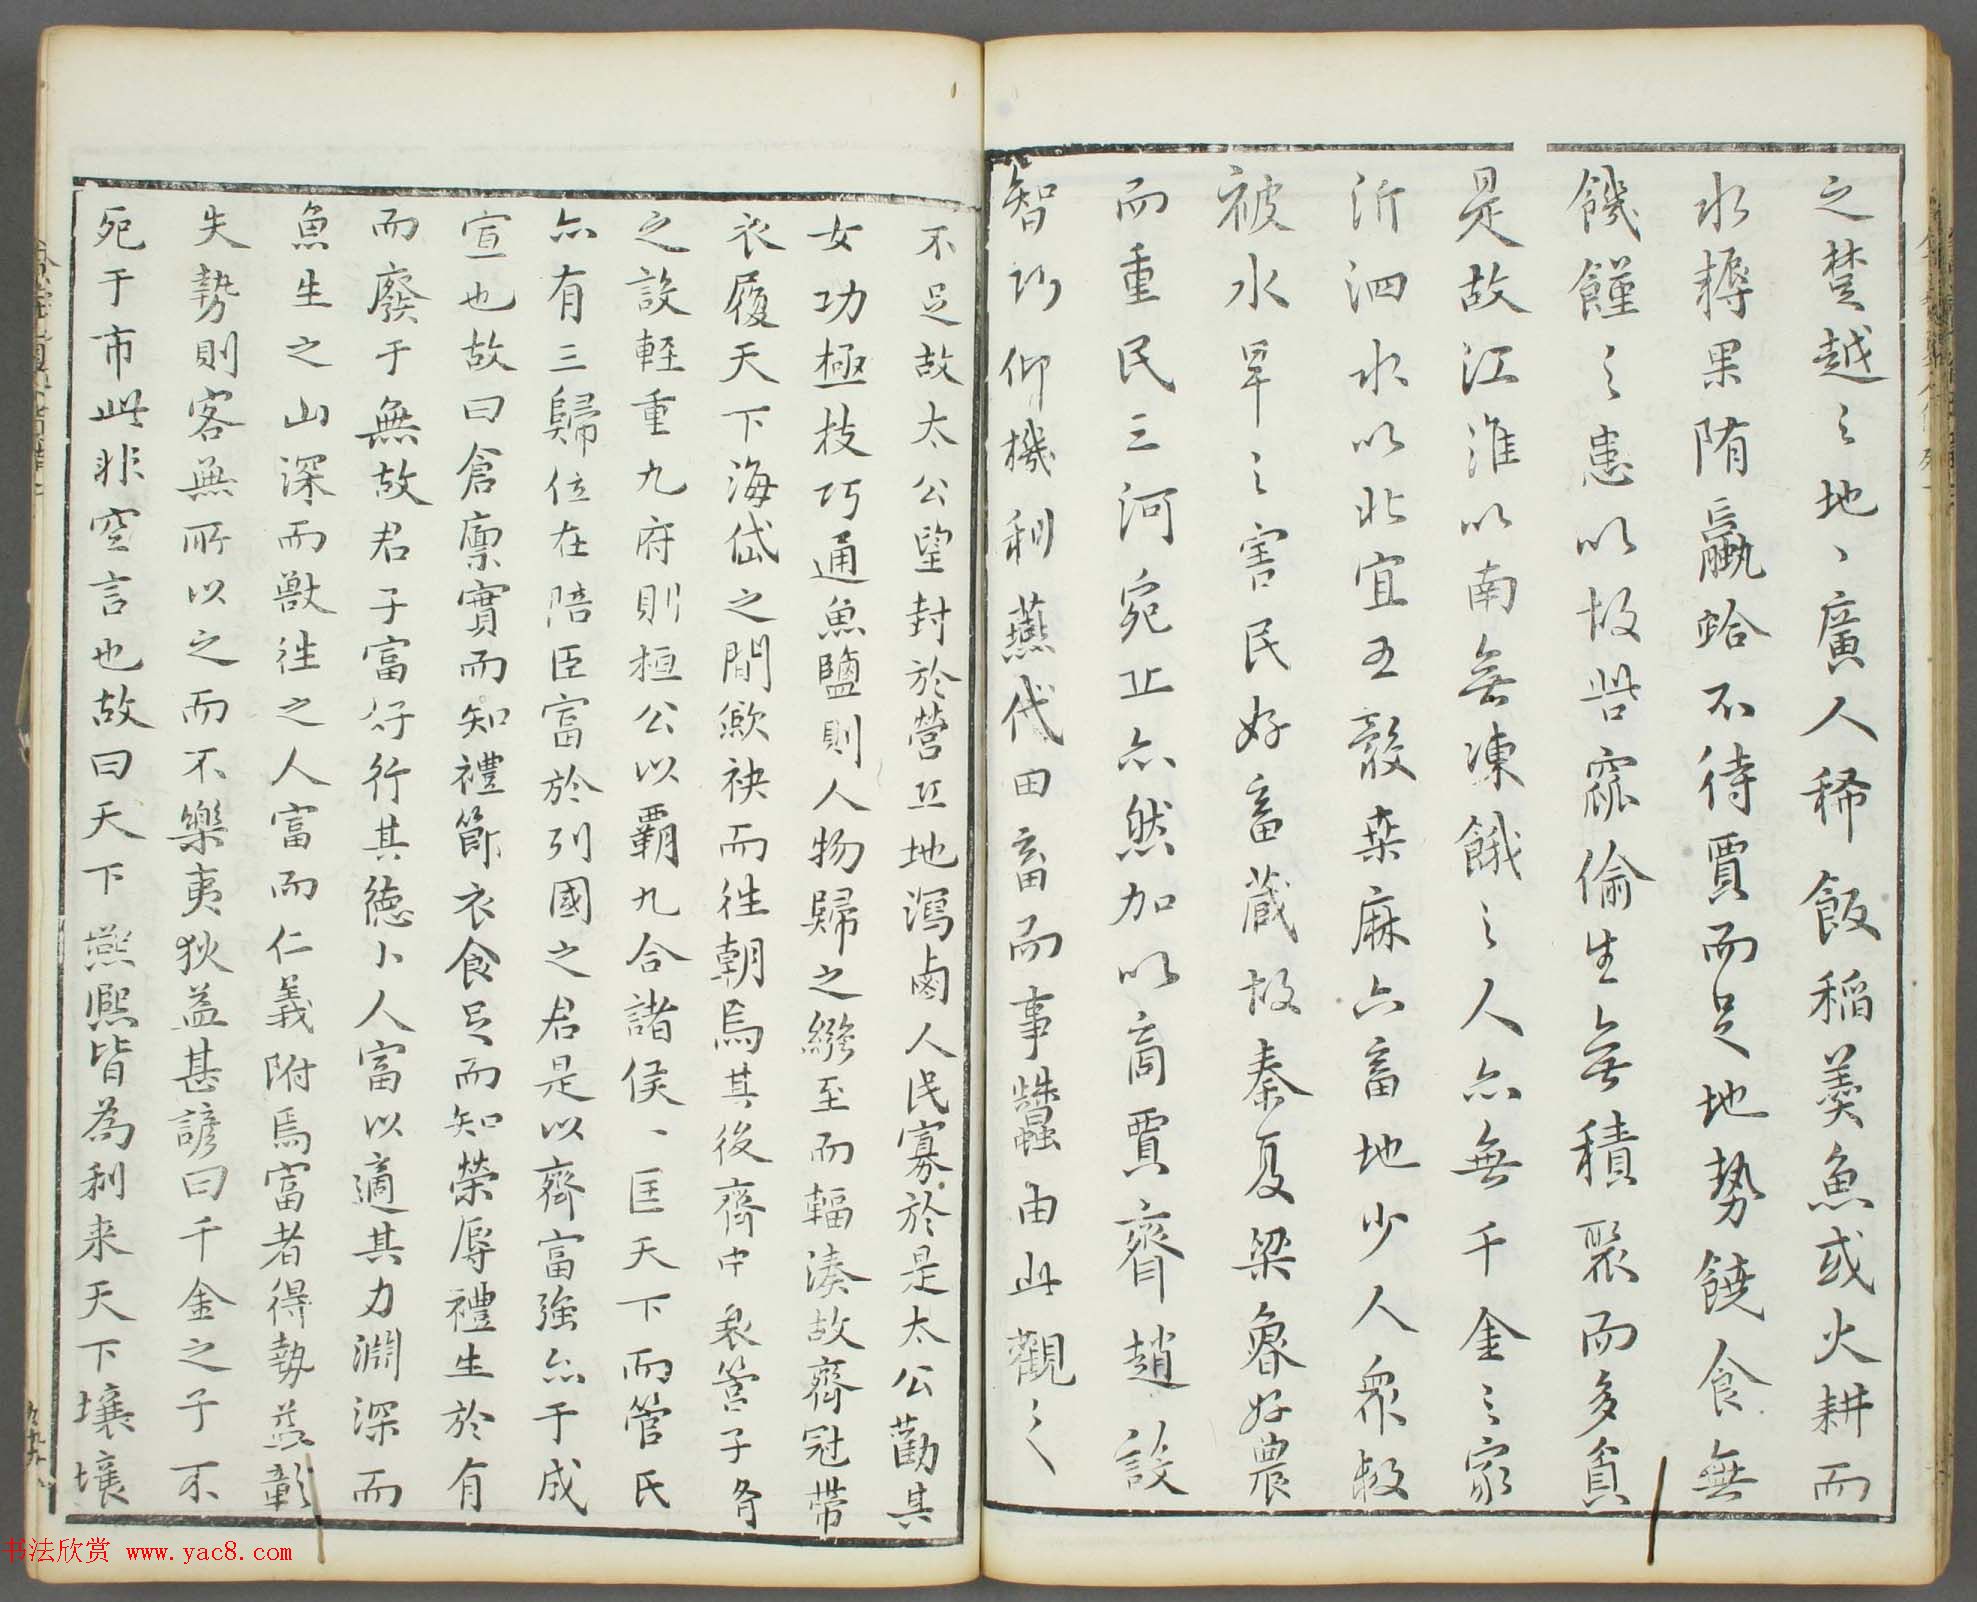 之楚越之地、廣人稀飯稲羹魚或火耕而
水耨果隋蠃蛤不待賈而足地勢饒食無
饑饉之患以故呰窳偷生無積聚而多貧
是故江淮以南無凍餓之人亦無千金之家
沂泗水以北宜五穀桒麻六畜地少人衆数
被水旱之害民好畜蔵故秦夏梁魯好農
而重民三河宛丘亦然加以商賈齊趙設
智巧仰機利燕代田畜而事蠶由此觀之
不足故太公望封於營丘地潟鹵人民寡於是太公勸其
女功極技巧通魚鹽則人物歸之繦至而輻湊故齊冠帶
衣履天下海岱之間歛袂而往朝焉其後齊中衰管子脩
之設軽重九府則桓公以覇九合諸侯、匡天下而管氏
亦有三歸位在陪臣富於列國之君是以齊富強亦于成
宣也故曰倉廪實而知禮節衣食足而知榮辱禮生於有
而廢于無故君子富好行其徳小人富以適其力淵深而
魚生之山深而獸往之人富而仁義附焉富者得勢益彰
失勢則客無所以之而不樂夷狄益甚諺曰千金之子不
死于市此非空言也故曰天下熙熙皆為利来天下壤壤
书法欣赏 www.yac8.com